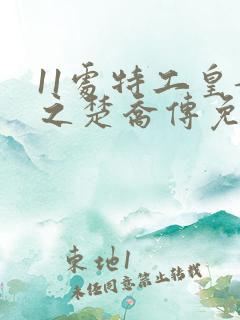 11处特工皇
之楚乔传免
东地1
未经同意禁止转载